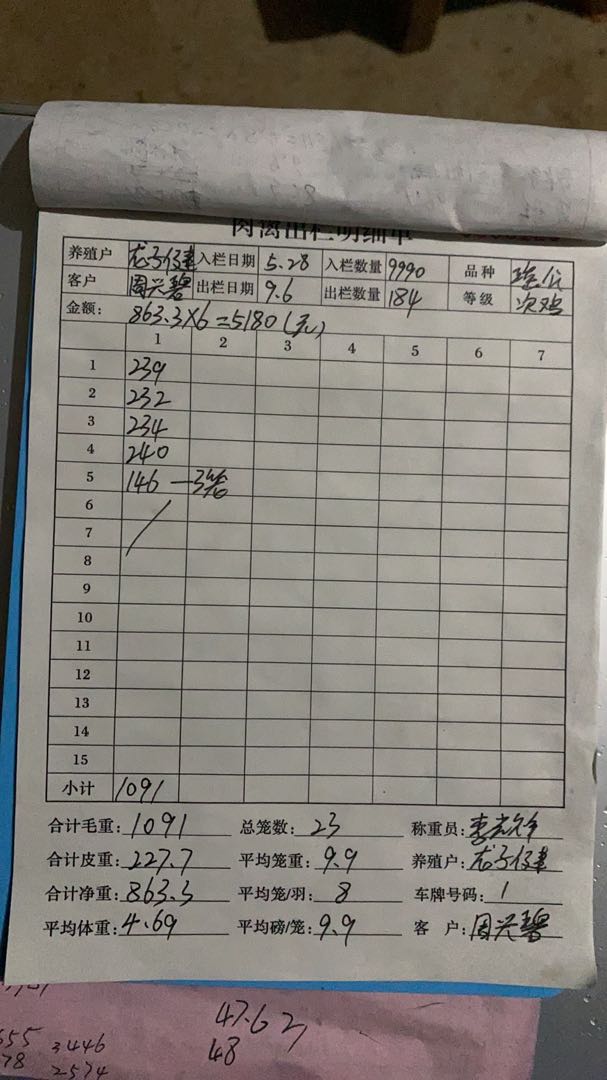 肉禽出栏明细单
养殖户 入栏日期 5.28 入栏数量 9990 品种
客户 周兴碧 出栏日期 9.6 出栏数量 184 等级 次鸡
金额: 863.3×6=5180(元)
1 2 3 4 5 6 7
1 239
2 232
3 234
4 240
5 146 —3笼
6
7
8
9
10
11
12
13
14
15
小计 1091
合计毛重: 1091 总笼数: 23 称重员:
合计皮重: 227.7 平均笼重: 9.9 养殖户:
合计净重: 863.3 平均笼/羽: 8 车牌号码: 1
平均体重: 4.69 平均磅/笼: 9.9 客 户: 周兴碧
47.62
48
3446
2574